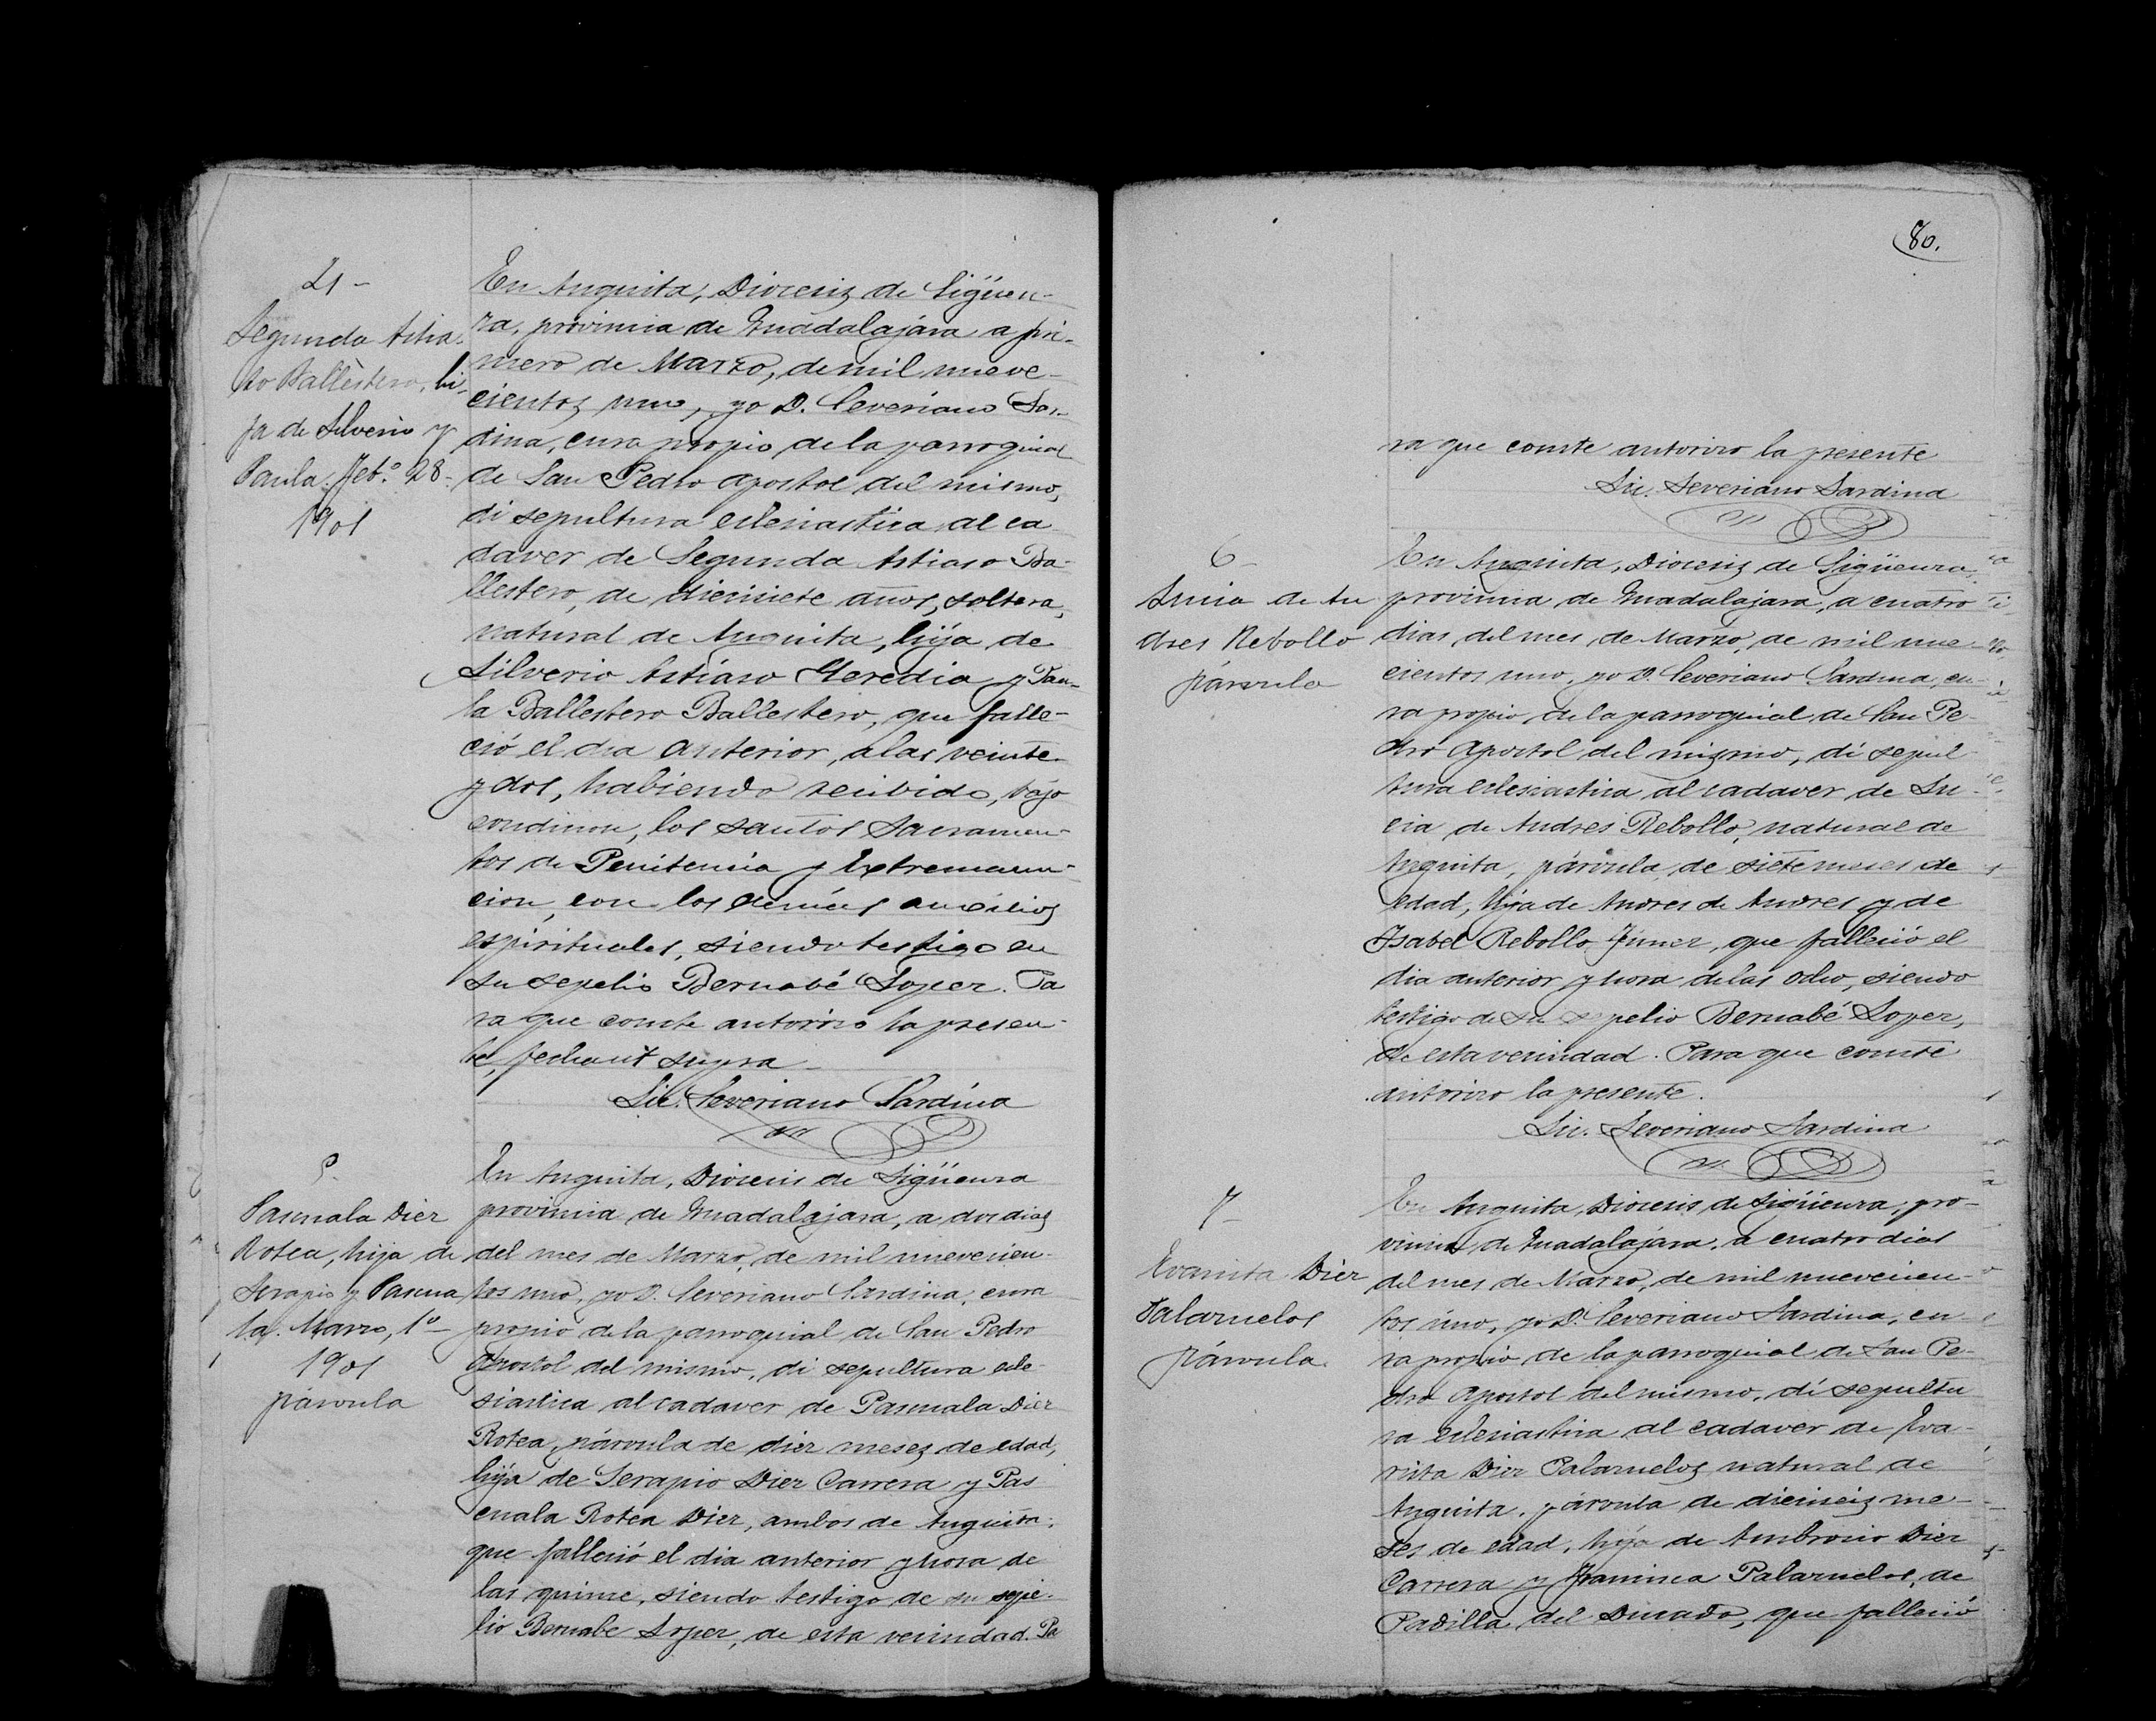 4 -
Segunda Astia-
so Ballestero, hi-
ja de Silverio y
Paula. Feb.º 28-
1901
En Anguita, Diocesis de Sigüen-
za, provincia de Guadalajara a pri-
mero de Marzo, de mil nueve-
cientos uno, yo D. Severiano Sar-
dina, cura propio de la parroquial
de San Pedro apostol del mismo,
di sepultura eclesiastica al ca
daver de Segunda Astiaso Ba-
llestero, de diecisiete años, soltera,
natural de Anguita, hija de
Silverio Astiaso Heredia y Pau-
la Ballestero Ballestero, que falle-
ció el dia anterior, a las veinte
y dos, habiendo recibido, bajo
condicion, los santos Sacramen-
tos de Penitencia y Extremaun-
cion, con los demás auxilios
espirituales, siendo testigo en
su sepelio Bernabé Lopez. Pa
ra que conste autorizo la presen-
te, fecha ut supra -
Lic. Severiano Sardina
5.
Pascuala Diez
Rotea, hija de
Serapio y Pascua
la. Marzo, 1º-
1901
párvula
En Anguita, Diocesis de Sigüenza
provincia de Guadalajara, a dos dias
del mes de Marzo, de mil novecien-
tos uno, yo D. Severiano Sardina, cura
propio de la parroquial de San Pedro
Apostol del mismo, di sepultura ecle-
siastica al cadaver de Pascuala Diez
Rotea, párvula de diez meses de edad,
hija de Serapio Diez Carrera y Pas
cuala Rotea Diez, ambos de Anguita;
que falleció el dia anterior y hora de
las quince, siendo testigo de su sepe-
lio Bernabe Lopez, de esta vecindad. Pa
80.
ra que conste autorizo la presente
Lic. Severiano Sardina
6-
Lucia de An
dres Rebollo
párvula
En Anguita, Diocesis de Sigüenza,
provincia de Guadalajara, a cuatro
dias del mes de Marzo, de mil nue-
cientos uno, yo D. Severiano Sardina, cu-
ra propio de la parroquial de San Pe-
dro Apostol del mismo, di sepul-
tura eclesiastica al cadaver de Lu-
cia de Andres Rebollo, natural de
Anguita, párvula, de siete meses de
edad, hija de Andres de Andres y de
Isabel Rebollo, que falleció el
dia anterior y hora de las ocho, siendo
testigo de su sepelio Bernabé Lopez,
de esta vecindad. Para que conste
autorizo la presente.
Lic. Severiano Sardina
7-
Evarista Diez
Palazuelos
párvula.
En Anguita, Diocesis de Sigüenza, pro-
vincia de Guadalajara, a cuatro dias
del mes de Marzo, de mil nuevecien-
tos uno, yo D. Severiano Sardina, cu-
ra propio de la parroquial de San Pe-
dro Apostol del mismo, di sepultu
ra eclesiastica al cadaver de Eva-
rista Diez Palazuelos natural de
Anguita, párvula de dieciseis me-
ses de edad, hija de Ambrosio Diez
Carrera y Francisca Palazuelos, de
Padilla del Ducado, que falleció